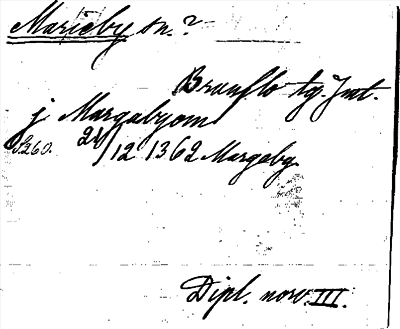 Marieby sn.?
Brunflo tg. Jmt.
j Margabyom
S. 260. 24/12 1362 Margaby
Dipl. norv. III.